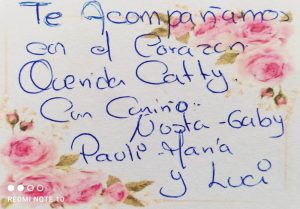 Te Acompañamos
con el Corazon
Querida Catty.
Con Cariño..
Nosta - Gaby
Pauli - María
y Luci
REDMI NOTE 10